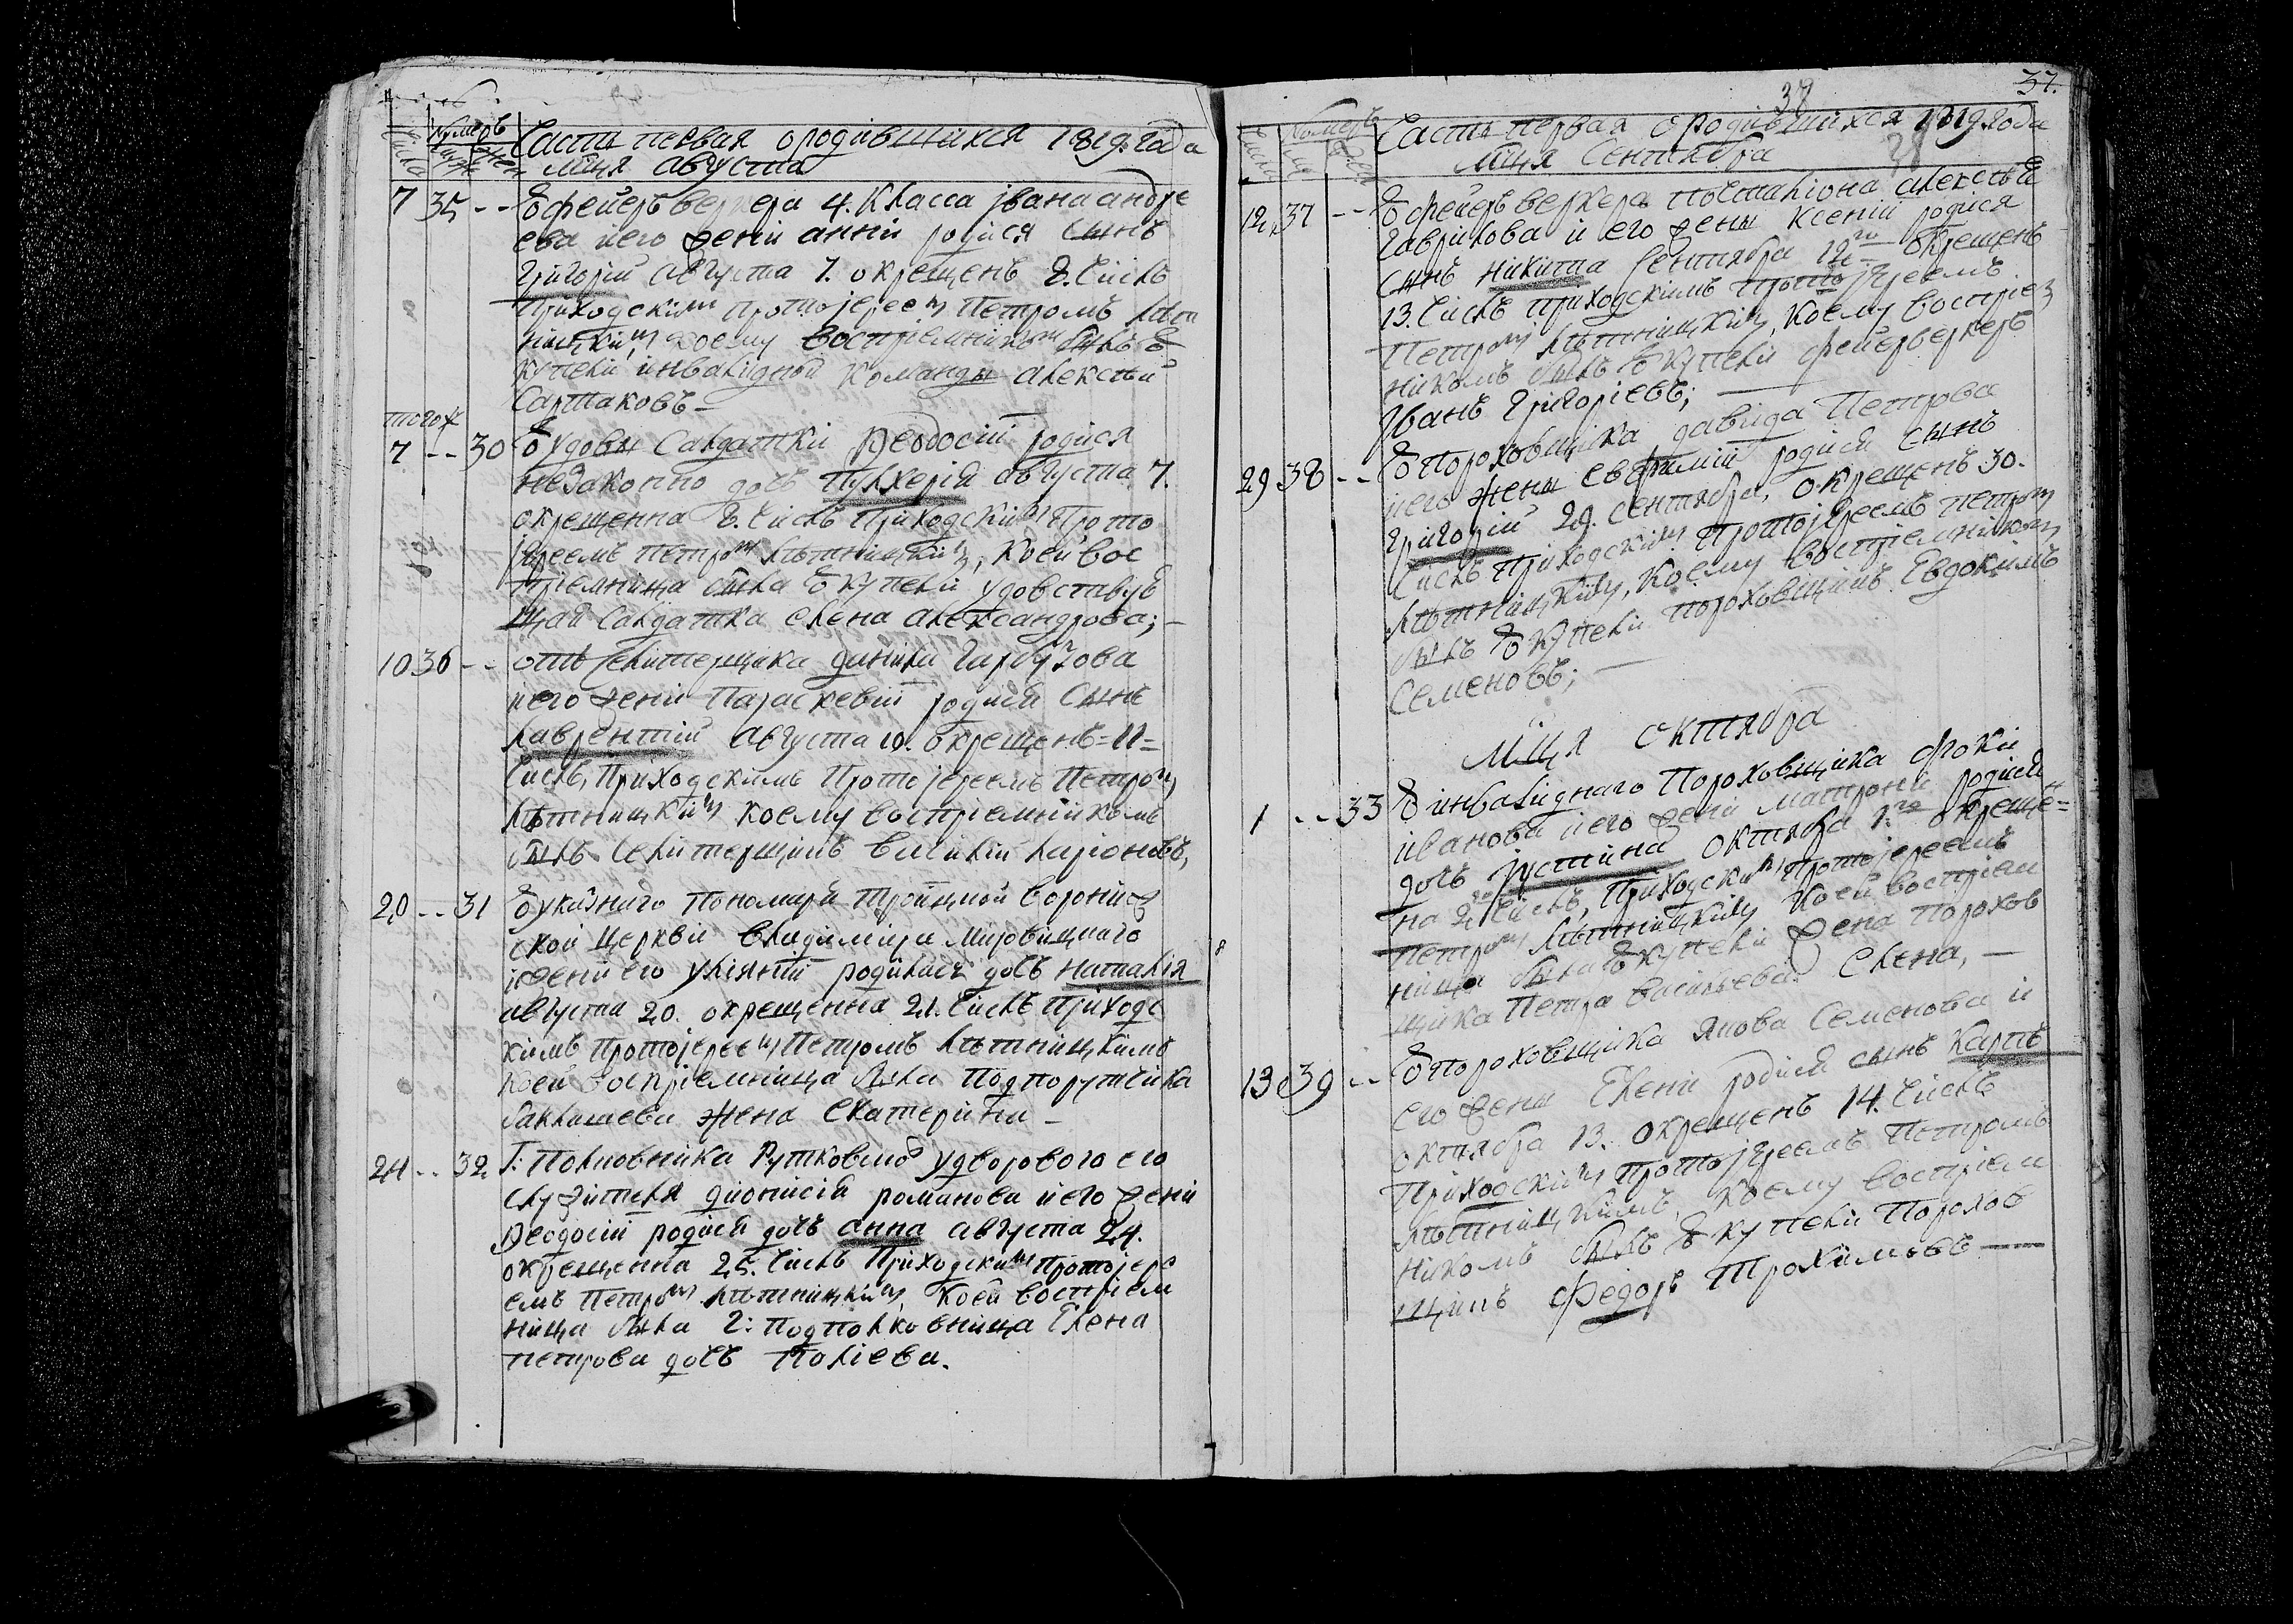 Нумеръ
Числа
муж
жен
Часть первая о родившихся 1819. года
мця августа
7 35 -- У фейерверкера 4. класса івана андре
ева и его жени анни родися сынъ
Григорій августа 7. окрещенъ 8. числъ
Приходскимъ протоіереемъ Петромъ Лѣт
ницкимъ, коему воспріемникомъ былъ у
купели инвалидной команды алексѣй
Сартаковъ –
тогож
7 -- 30 У удовы салдатки Феодосіи родися
незаконно дочъ Пулхерія августа 7.
окрещенна 8. числъ Приходскимъ Прото
іереемъ Петромъ Лѣтницкимъ, коей вос
пріемница была у купели удовствую
щая салдатка елена александрова; –
10 36 -- отъ селитерщика данила Гарбузова
и его жени Параскевіи родися сынъ
Лаврентій августа 10. окрещенъ = 11 =
числъ, Приходскимъ Протоіереемъ Петромъ
Лѣтницкимъ коему воспріемникомъ
былъ селитерщикъ василій ларіоновъ,
20 -- 31 У указнаго Пономаря Троицкой вороніж
ской церкви владиміра Мировицкаго
и жени его уліяніи родилась дочъ наталія
августа 20. окрещенна 21. числъ Приходс
кимъ Протоіереемъ Петромъ Лѣтницкимъ
коей воспріемница была Подпоручика
баклашева жена екатерина –
24 -- 32 Г: Полковника Рутковскаго у дворового его
служителя дионисія романова и его жени
Феодосіи родися дочъ анна августа 24.
окрещенна 25. числъ Приходскимъ Протоіере
емъ Петромъ Лѣтницкимъ, коей воспріем
ница была Г: Подполковница Елена
петрова дочъ Поліева.
38
37.
Нумеръ
Числа
Часть первая о родившихся 1819. года
28
мця Сентября
12 37 -- У фейерверкера постиліона алексѣя
Гаврилова и его жены Ксеніи родися
сынъ никита Сентября 12го окрещенъ
13. числъ приходскимъ протоіереемъ
Петромъ Лѣтницкимъ, коему воспріем
никомъ былъ у купели фейерверкеръ
Иванъ Григоріевъ; –
29 38 -- У Пороховщика давида Петрова
и его жены евфиміи родися сынъ
Григорій 29. сентября, окрещенъ 30.
числъ приходскимъ протоіереемъ петромъ
Лѣтницкимъ, коему воспріемникомъ
былъ у купели пороховщикъ Евдокимъ
Семеновъ; –
мця октября
1 -- 33 У инвалиднаго Пороховщика фоки
иванова и его жени матрони родися
дочъ іустина октября 1го окреще=
на 2го числъ, Приходскимъ Протоіереемъ
Петромъ Лѣтницкимъ коей воспріем
ница была у купели жена Порохов
щика Петра васильева. Елена, –
13 39 -- У Пороховщика якова Семенова и
его жены Елени родися сынъ Карпъ
октября 13. окрещенъ 14. числъ
Приходскимъ Протоіереемъ Петромъ
Лѣтницкимъ, коему воспріем
никомъ былъ у купели Порохов
щикъ Федоръ Трохимовъ –